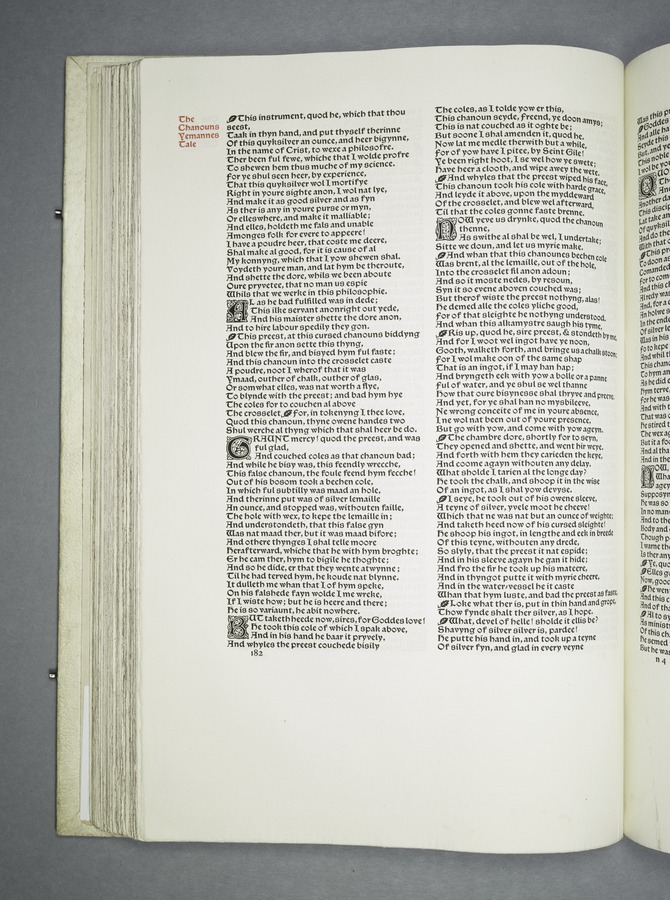 The
Chanouns
Yemannes
Tale
This instrument, quod he, which that thou
seest,
Taak in thyn hand, and put thyself therinne
Of this quyksilver an ounce, and heer bigynne,
In the name of Crist, to wexe a philosofre.
Ther been ful fewe, whiche that I wolde profre
To shewen hem thus muche of my science.
For ye shul seen heer, by experience,
That this quyksilver wol I mortifye
Right in youre sighte anon, I wol nat lye,
And make it as good silver and as fyn
As ther is any in youre purse or myn,
Or elleswhere, and make it malliable;
And elles, holdeth me fals and unable
Amonges folk for evere to appeere!
I have a poudre heer, that coste me deere,
Shal make al good, for it is cause of al
My konnyng, which that I yow shewen shal.
Voydeth youre man, and lat hym be theroute,
And shette the dore, whils we been aboute
Oure pryvetee, that no man us espie
Whils that we werke in this philosophie.
AL as he bad fulfilled was in dede;
This ilke servant anonright out yede,
And his maister shette the dore anon,
And to hire labour spedily they gon.
This preest, at this cursed chanouns biddyng
Upon the fir anon sette this thyng,
And blew the fir, and bisyed hym ful faste;
And this chanoun into the crosselet caste
A poudre, noot I wherof that it was
Ymaad, outher of chalk, outher of glas,
Or somwhat elles, was nat worth a flye,
To blynde with the preest; and bad hym hye
The coles for to couchen al above
The crosselet, For, in tokenyng I thee love,
Quod this chanoun, thyne owene handes two
Shul werche al thyng which that shal heer be do.
GRAUNT mercy! quod the preest, and was
ful glad,
And couched coles as that chanoun bad;
And while he bisy was, this feendly wrecche,
This false chanoun, the foule feend hym fecche!
Out of his bosom took a bechen cole,
In which ful subtilly was maad an hole,
And therinne put was of silver lemaille
An ounce, and stopped was, withouten faille,
The hole with wex, to kepe the lemaille in;
And understondeth, that this false gyn
Was nat maad ther, but it was maad bifore;
And othere thynges I shal telle moore
Herafterward, whiche that he with hym broghte;
Er he cam ther, hym to bigile he thoghte;
And so he dide, er that they wente atwynne;
Til he had terved hym, he koude nat blynne.
It dulleth me whan that I of hym speke,
On his falshede fayn wolde I me wreke,
If I wiste how; but he is heere and there;
He is so variaunt, he abit nowhere.
BUT taketh heede now, sires, for Goddes love!
He took this cole of which I spak above,
And in his hand he baar it pryvely.
And whyles the preest couchede bisily
182
The coles, as I tolde yow er this,
This chanoun seyde, Freend, ye doon amys;
This is nat couched as it oghte be;
But soone I shal amenden it, quod he.
Now lat me medle therwith but a while,
For of yow have I pitee, by Seint Gile!
Ye been right hoot, I se wel how ye swete;
Have heer a clooth, and wipe awey the wete.
And whyles that the preest wiped his face,
This chanoun took his cole with harde grace,
And leyde it above, upon the myddeward
Of the crosselet, and blew wel afterward,
Til that the coles gonne faste brenne.
NOW yeve us drynke, quod the chanoun
thenne,
As swithe al shal be wel, I undertake;
Sitte we doun, and let us myrie make.
And whan that this chanounes bechen cole
Was brent, al the lemaille, out of the hole,
Into the crosselet fil anon adoun;
And so it moste nedes, by resoun,
Syn it so evene aboven couched was;
But therof wiste the preest nothyng, alas!
He demed alle the coles yliche good,
For of that sleighte he nothyng understood.
And whan this alkamystre saugh his tyme,
Ris up, quod he, sire preest, & stondeth by me;
And for I woot wel ingot have ye noon,
Gooth, walketh forth, and bringe us a chalk stoon;
For I wol make oon of the same shap
That is an ingot, if I may han hap;
And bryngeth eek with yow a bolle or a panne
Ful of water, and ye shul se wel thanne
How that oure bisynesse shal thryve and preeve.
And yet, for ye shal han no mysbileeve,
Ne wrong conceite of me in youre absence,
I ne wol nat been out of youre presence,
But go with yow, and come with yow ageyn.
The chambre dore, shortly for to seyn,
They opened and shette, and went hir weye.
And forth with hem they carieden the keye,
And coome agayn withouten any delay.
What sholde I tarien al the longe day?
He took the chalk, and shoop it in the wise
Of an ingot, as I shal yow devyse.
I seye, he took out of his owene sleeve,
A teyne of silver, yvele moot he cheeve!
Which that ne was nat but an ounce of weighte;
And taketh heed now of his cursed sleighte!
He shoop his ingot, in lengthe and eek in breede
Of this teyne, withouten any drede,
So slyly, that the preest it nat espide;
And in his sleeve agayn he gan it hide;
And fro the fir he took up his mateere,
And in thyngot putte it with myrie cheere,
And in the water-vessel he it caste
Whan that hym luste, and bad the preest as faste,
Loke what ther is, put in thin hand and grope,
Thow fynde shalt ther silver, as I hope.
What, devel of helle! sholde it ellis be?
Shavyng of silver silver is, pardee!
He putte his hand in, and took up a teyne
Of silver fyn, and glad in every veyne